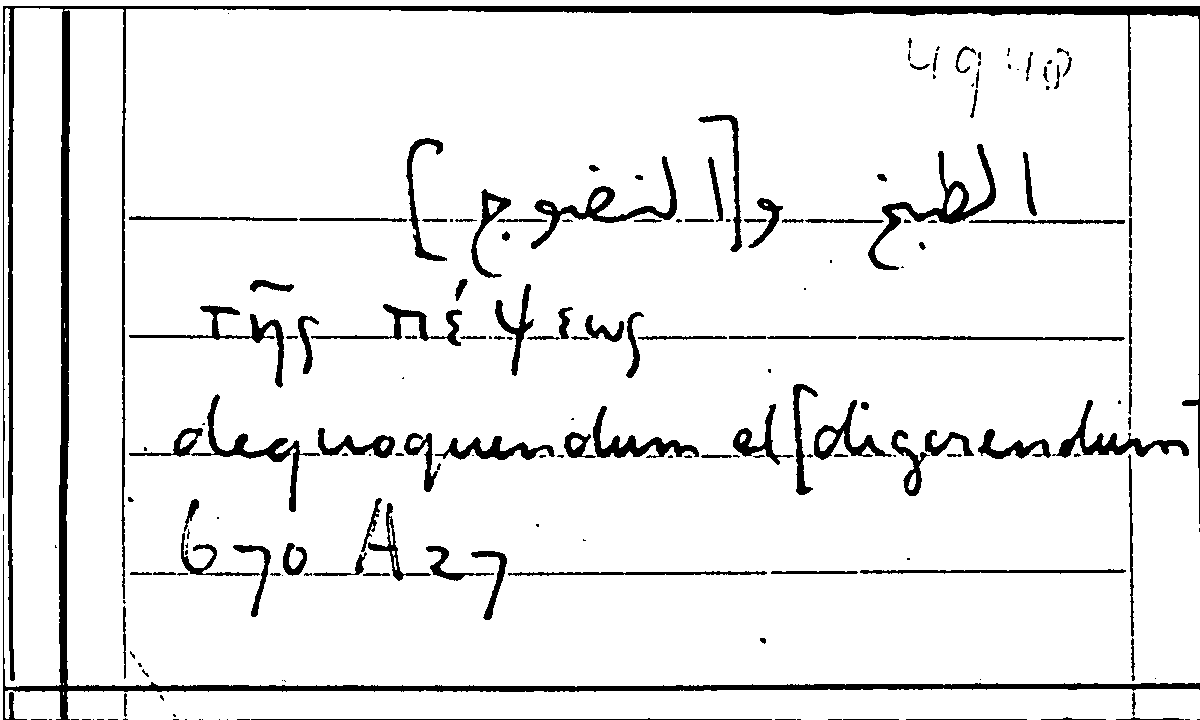 4940
الطبخ و[النضوج]
τῆς πέψεως
dequoquendum el [digerendum]
670 A 27